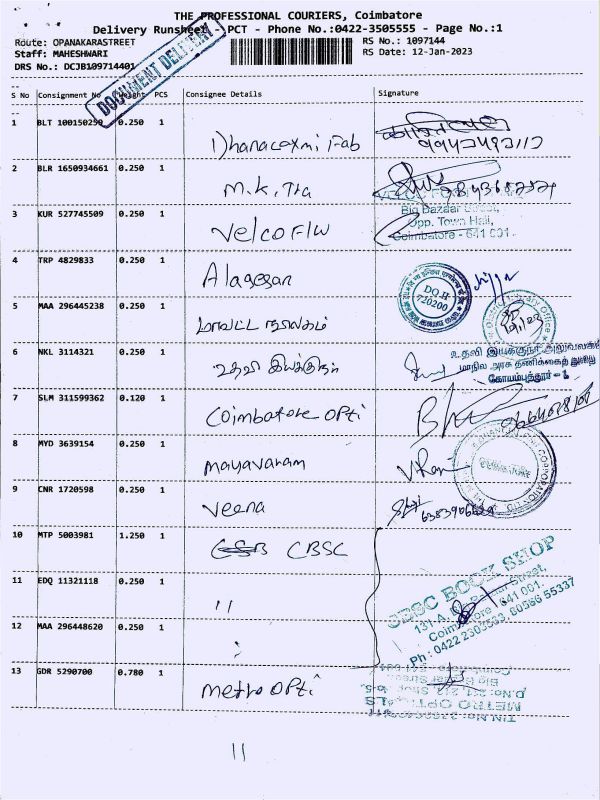 THE PROFESSIONAL COURIERS, Coimbatore
Delivery Runsheet - PCT - Phone No.:0422-3505555 - Page No.:1
Route: OPANAKARASTREET
RS No.: 1097144
Staff: MAHESHWARI
RS Date: 12-Jan-2023
DRS No.: DCJB109714401
DOCUMENT DELIVERY
S No Consignment No Weight PCS Consignee Details Signature
1 BLT 100150259 0.250 1 Dhanalaxmi Fab
2 BLR 1650934661 0.250 1 M.K. Tra
3 KUR 527745509 0.250 1 Velco F/W
Big Bazaar Street,
Opp. Town Hall,
Coimbatore - 641 001.
4 TRP 4829833 0.250 1 Alagesan
DQ II
720200
5 MAA 296445238 0.250 1 மாவட்ட நூலகம்
Library Office
6 NKL 3114321 0.250 1 உதவி இயக்குநர்
உதவி இயக்குநர் அலுவலகம்
மாநில அரசு தணிக்கைத் துறை
கோயம்புத்தூர் - 1
7 SLM 311599362 0.120 1 Coimbatore opti
8 MYD 3639154 0.250 1 mayavaram
9 CNR 1720598 0.250 1 Veena
10 MTP 5003981 1.250 1 CBSC
CBSC BOOK SHOP
Coimbatore - 641 001.
11 EDQ 11321118 0.250 1 "
12 MAA 296448620 0.250 1
13 GDR 5290700 0.780 1 metro opti
Big Bazaar Street
METRO OPTICALS
11